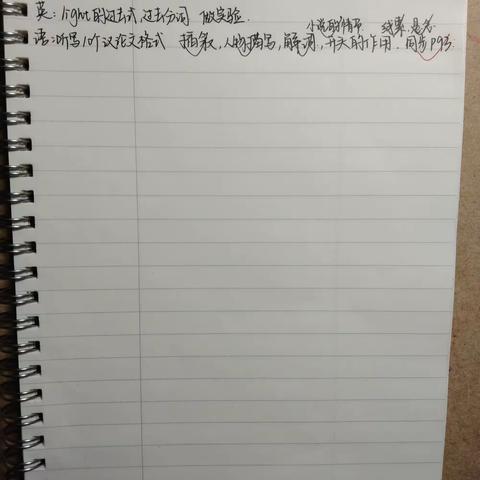 英: light的过去式,过去分词 做实验.
小说的情节 线索,悬念
语:听写,10个议论文格式 插叙,人物描写,解词,开头的作用.同步P93.